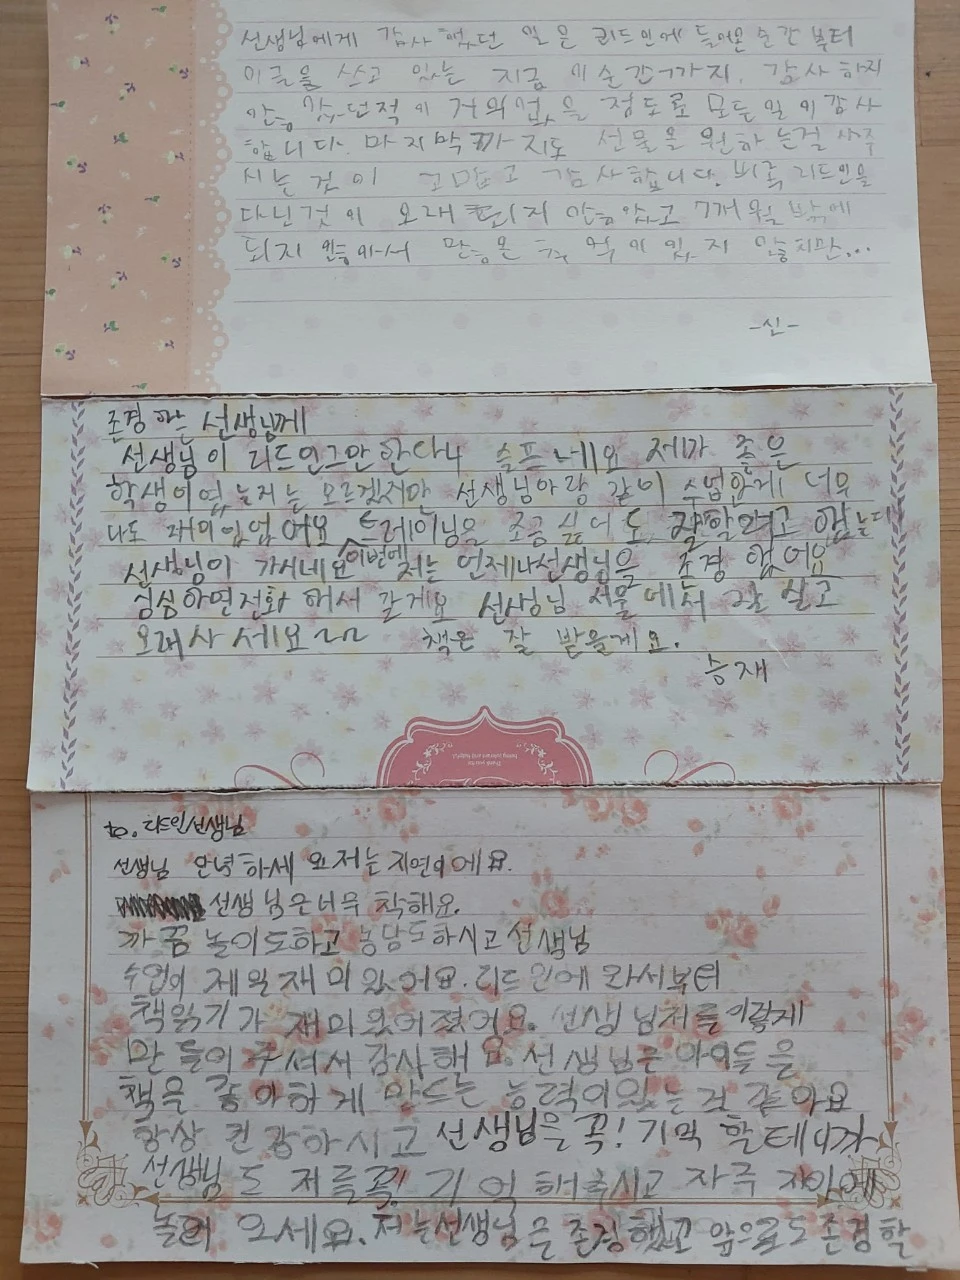 선생님에게 감사했던 일은 리드인에 들어온 순간부터
이글을 쓰고 있는 지금 이순간까지, 감사하지
않았던적이 거의없을 정도로 모든일이감사
합니다. 마지막까지도 선물을 원하는걸 사주
시는 것이 고맙고 감사합니다. 비록 리드인을
다닌것이 오래 되지 않았고 7개월 밖에
되지 않아서 많은 추억이 있지 않지만...
-신-
존경하는 선생님께
선생님이 리드인그만한다니 슬프네요 제가 좋은
학생이였는지는 모르겠지만 선생님이랑 같이 수업한게 너무
나도 재미있었어요 조금 더 잘할려고 했는데
선생님이 가시네요 이번에 저는 언제나선생님을 존경했어요
심심하면전화 해서 갈게요 선생님 서울에서 잘 살고
오래사세요 ㅠㅠ 책은 잘 받을게요.
승재
to. 리드인선생님
선생님 안녕하세요 저는 지연이에요.
선생님은너무 착해요.
까끔 놀이도하고 농담도하시고 선생님
수업이 제일재미있어요. 리드인에 와서부터
책읽기가 재미있어졌어요. 선생님저를이렇게
만들어주셔서감사해요. 선생님은 아이들을
책을 좋아하게 만드는 능력이있는것 같아요
항상 건강하시고 선생님을꼭! 기억 할테니까
선생님도 저를꼭! 기억해주시고 자주
놀러 오세요. 저는선생님을 존경했고 앞으로도존경할